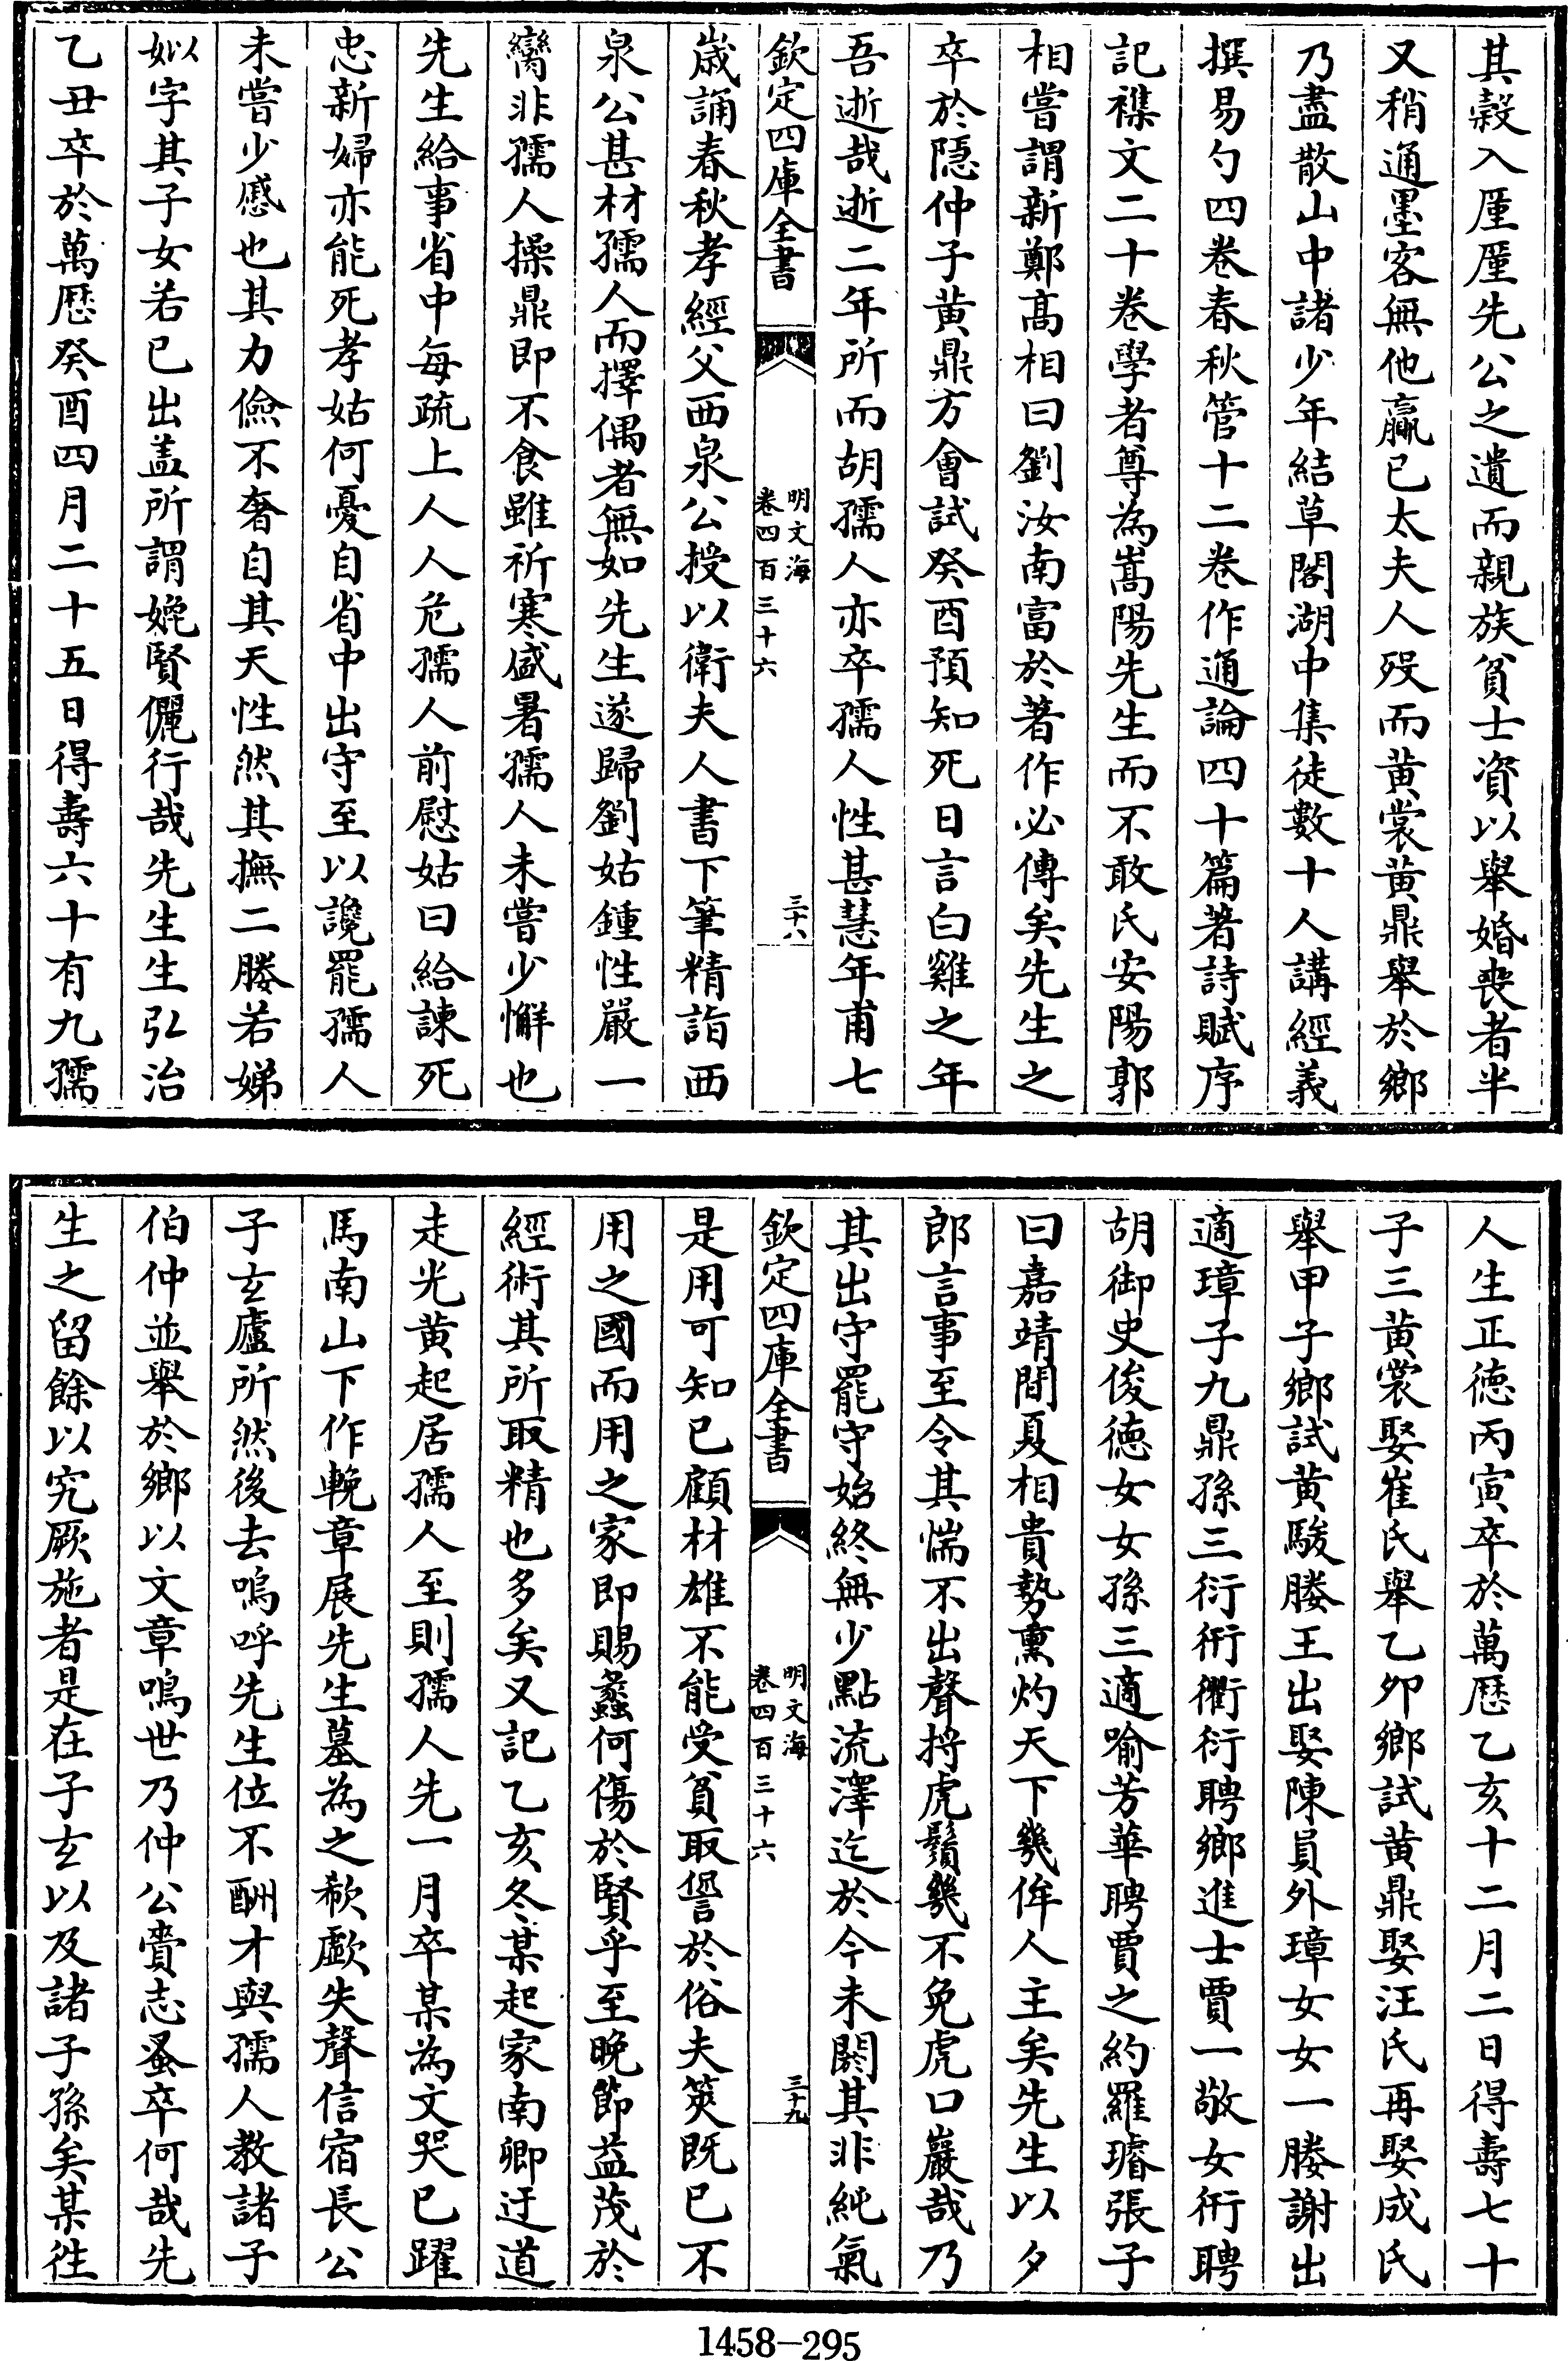 其穀入厪厪先公之遺而親族貧士資以舉婚喪者半
又稍通墨客無他贏已太夫人歿而黄裳黄鼎舉於鄉
乃盡散山中諸少年結草閣湖中集徒數十人講經義
撰易勺四卷春秋管十二卷作通論四十篇著詩賦序
記襍文二十卷學者尊為嵩陽先生而不敢氏安陽郭
相嘗謂新鄭髙相曰劉汝南富於著作必傳矣先生之
卒於隠仲子黄鼎方會試癸酉預知死日言白雞之年
吾逝哉逝二年所而胡孺人亦卒孺人性甚慧年甫七
欽定四庫全書
明文海
卷四百三十六
三十八
歳誦春秋孝經父西泉公授以衛夫人書下筆精詣西
泉公甚材孺人而擇偶者無如先生遂歸劉姑鍾性嚴一
臠非孺人操鼎即不食雖祈寒盛暑孺人未嘗少懈也
先生給事省中每疏上人人危孺人前慰姑曰給諫死
忠新婦亦能死孝姑何憂自省中出守至以讒罷孺人
未嘗少慼也其力儉不奢自其天性然其撫二媵若娣
姒以字其子女若已出盖所謂娩賢儷行哉先生生弘治
乙丑卒於萬厯癸酉四月二十五日得壽六十有九孺
人生正徳丙寅卒於萬厯乙亥十二月二日得壽七十
子三黄裳娶崔氏舉乙夘鄉試黄鼎娶汪氏再娶成氏
舉甲子鄉試黄駿媵王出娶陳員外璋女女一媵謝出
適璋子九鼎孫三衍衎衢衍聘鄉進士賈一敬女衎聘
胡御史俊徳女女孫三適喻芳華聘賈之約羅璿張子
曰嘉靖間夏相貴勢熏灼天下幾侔人主矣先生以夕
郎言事至令其惴不出聲捋虎鬚幾不免虎口巖哉乃
其出守罷守始終無少點流澤迄於今未闋其非純氣
欽定四庫全書
明文海
卷四百三十六
三十九
是用可知已顧材雄不能受貧取詧於俗夫筴既已不
用之國而用之家即賜蠡何傷於賢乎至晚節益茂於
經術其所取精也多矣又記乙亥冬某起家南卿迂道
走光黄起居孺人至則孺人先一月卒某為文哭已躍
馬南山下作輓章展先生墓為之欷歔失聲信宿長公
子玄廬所然後去嗚呼先生位不酬才與孺人教諸子
伯仲並舉於鄉以文章鳴世乃仲公賫志蚤卒何哉先
生之留餘以究厥施者是在子玄以及諸子孫矣某徃
1458-295